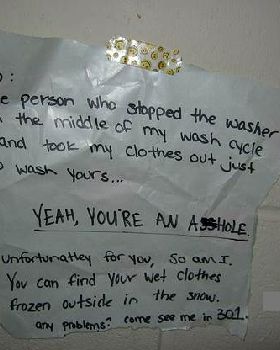 :
e person who stopped the washer
the middle of my wash cycle
and took my clothes out just
wash yours...
YEAH, YOU'RE AN ASSHOLE
Unfortunatley for you, So am I.
You can find your wet clothes
frozen outside in the snow.
any problems? come see me in 301.